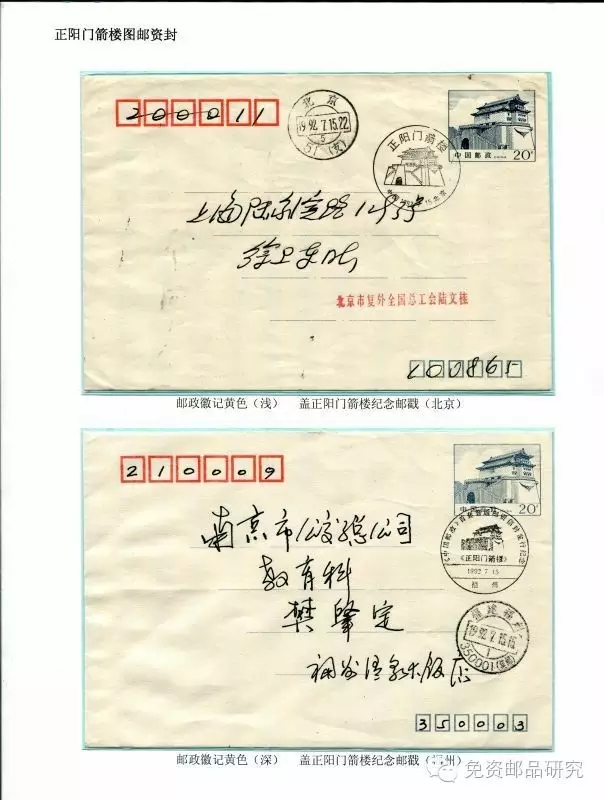 正阳门箭楼图邮资封
200011
北京
1992.7.15.22
5
51(支)
正阳门箭楼
中国邮政
20分
北京市复外全国总工会陆文栋
100865
邮政徽记黄色（浅） 盖正阳门箭楼纪念邮戳（北京）
210009
中国邮政
20分
《正阳门箭楼》
1992 7 15
福州
南京市公交总公司
教育科
樊峰定
福建福州
1992.7.15.16
1
350001
福州温泉大饭店
350003
邮政徽记黄色（深） 盖正阳门箭楼纪念邮戳（福州）
免资邮品研究